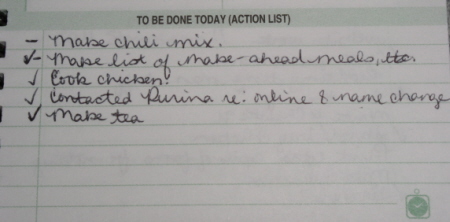 TO BE DONE TODAY (ACTION LIST)
– Make chili mix.
✓– Make list of make-ahead meals, etc.
✓ Cook chicken!
✓ Contacted Purina re: online & name change
✓ Make tea